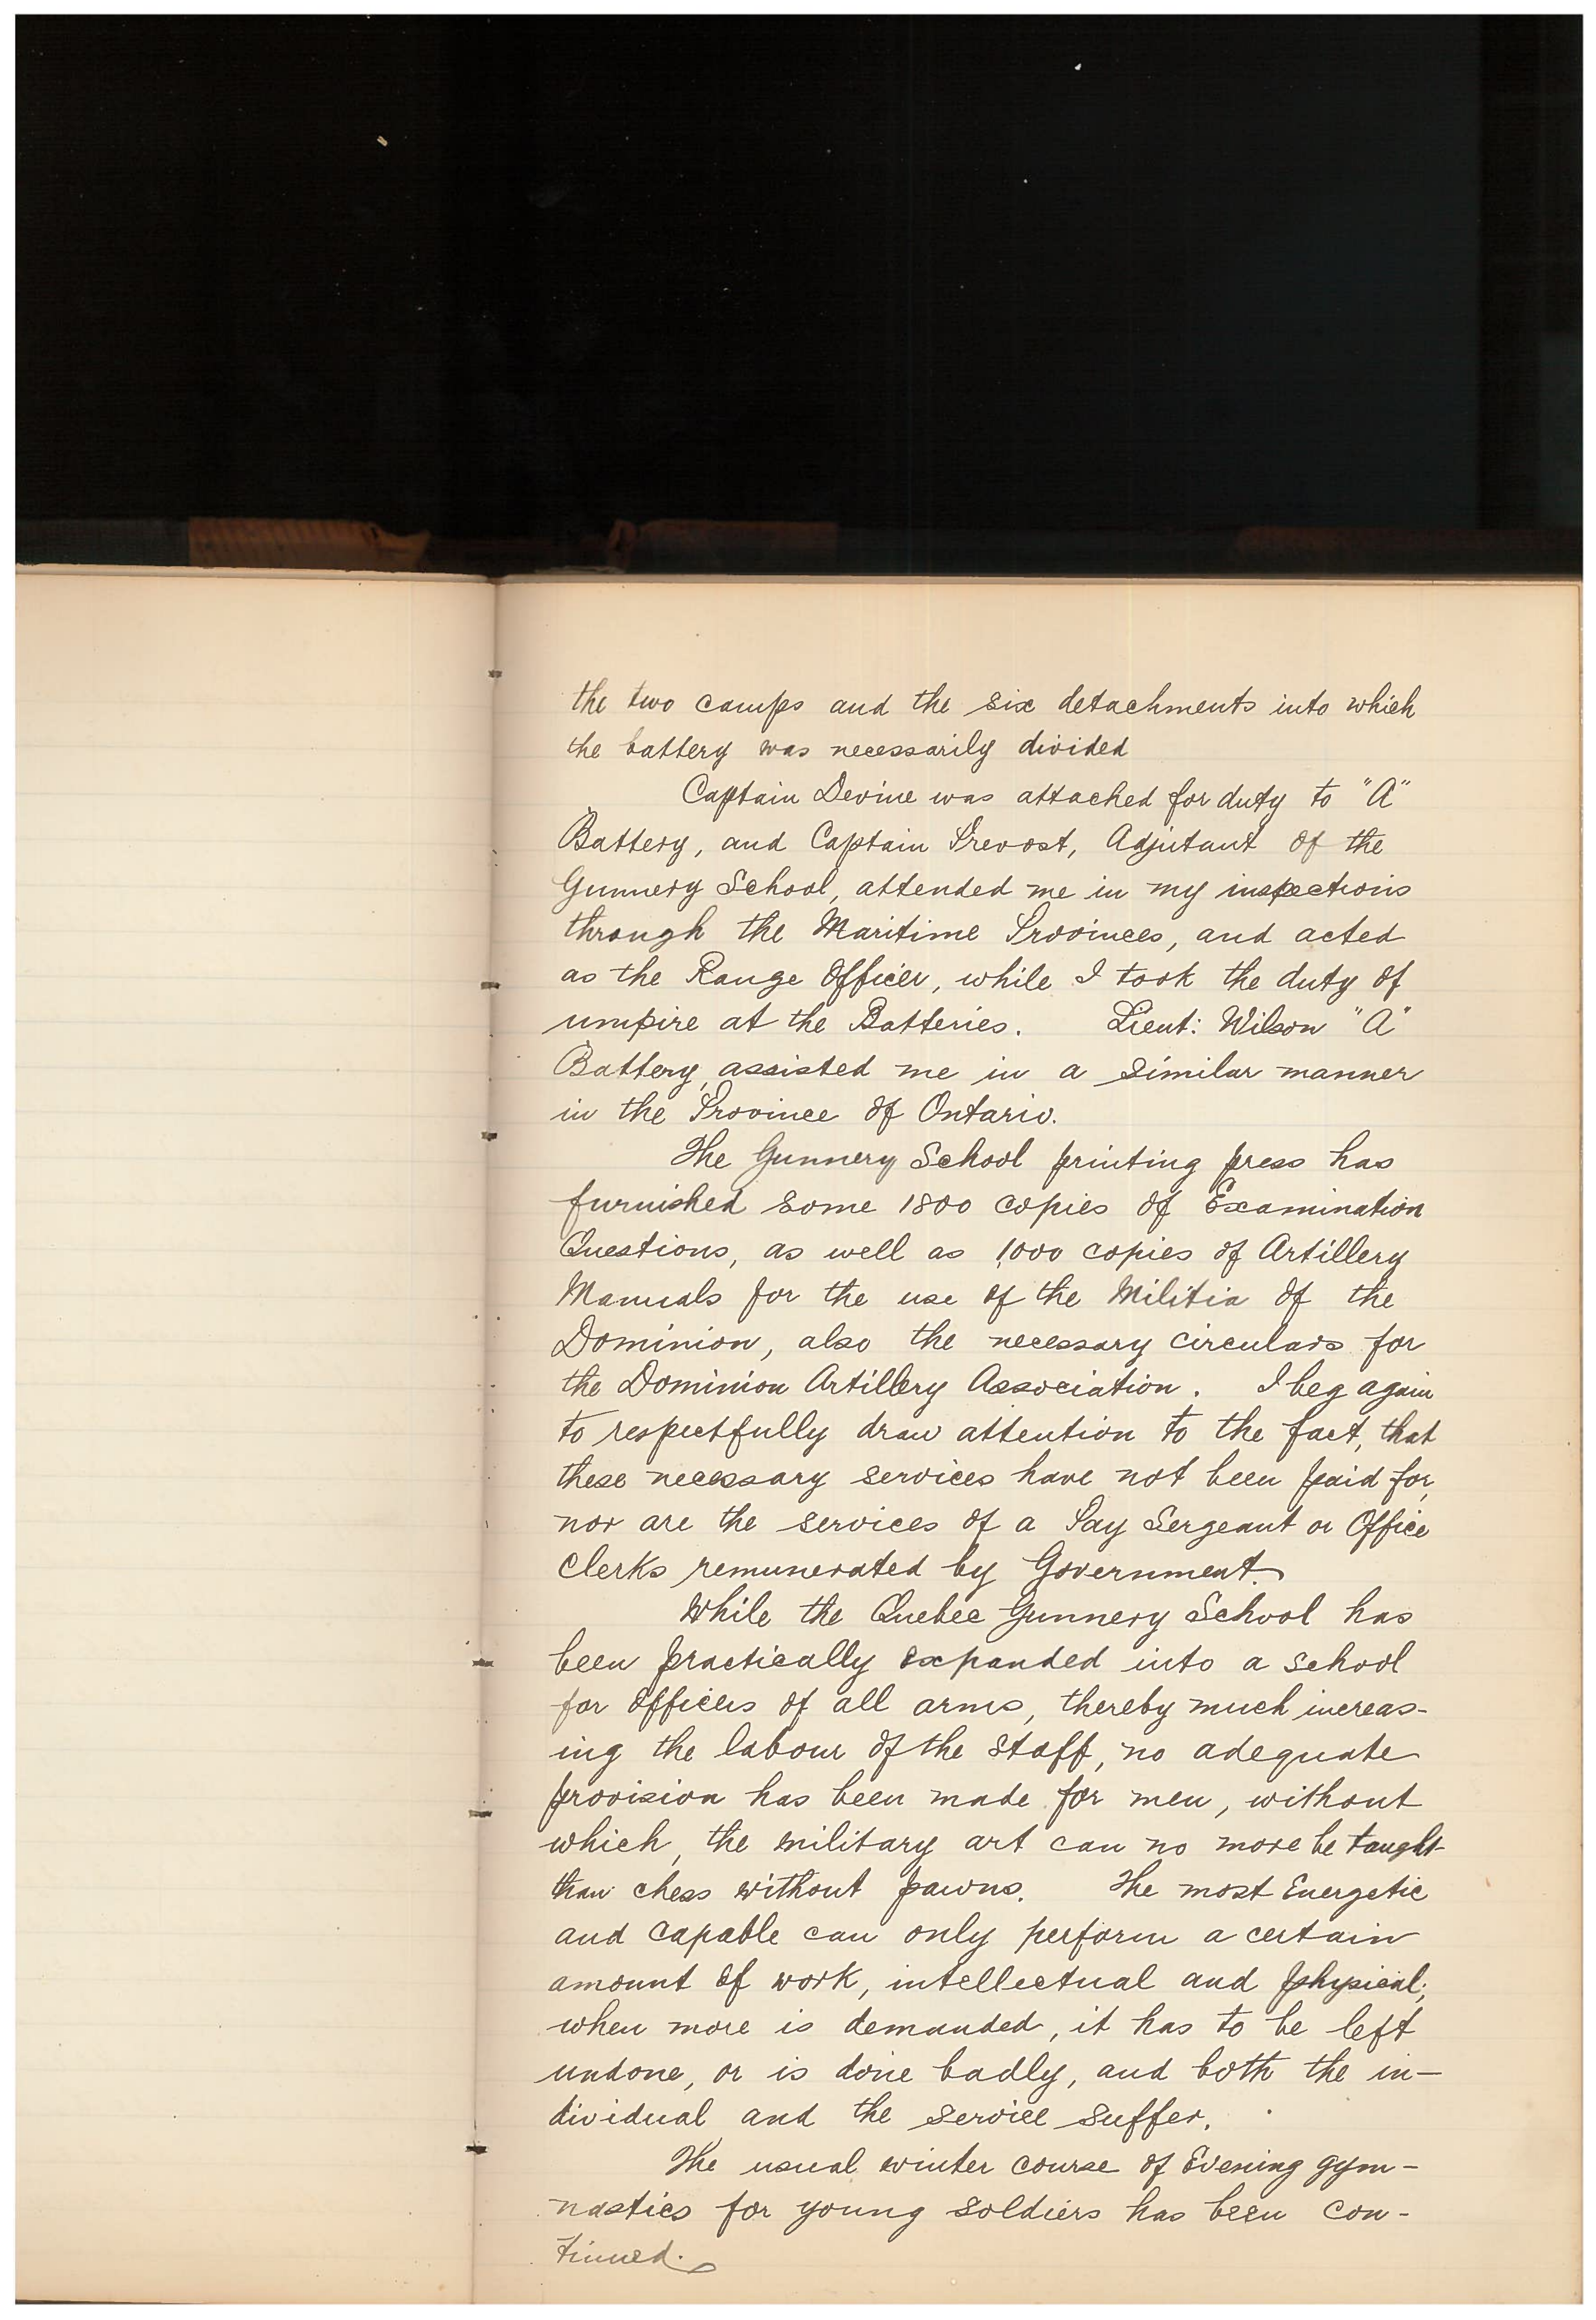 the two camps and the six detachments into which
the battery was necessarily divided
Captain Devine was attached for duty to "A"
Battery, and Captain Prevost, Adjutant of the
Gunnery School, attended me in my inspections
through the Maritime Provinces, and acted
as the Range Officer, while I took the duty of
umpire at the Batteries. Lieut: Wilson "A"
Battery, assisted me in a similar manner
in the Province of Ontario.
The Gunnery School printing press has
furnished some 1800 copies of Examination
Questions, as well as 1,000 copies of Artillery
Manuals for the use of the Militia of the
Dominion, also the necessary circulars for
the Dominion Artillery Association. I beg again
to respectfully draw attention to the fact, that
these necessary services have not been paid for,
nor are the services of a Pay Sergeant or Office
Clerks remunerated by Government.
While the Quebec Gunnery School has
been practically expanded into a school
for officers of all arms, thereby much increas-
ing the labour of the staff, no adequate
provision has been made for men, without
which, the military art can no more be taught
than chess without pawns. The most Energetic
and capable can only perform a certain
amount of work, intellectual and physical;
when more is demanded, it has to be left
undone, or is done badly, and both the in-
dividual and the service suffer.
The usual winter course of Evening gym-
nastics for young soldiers has been con-
tinued.